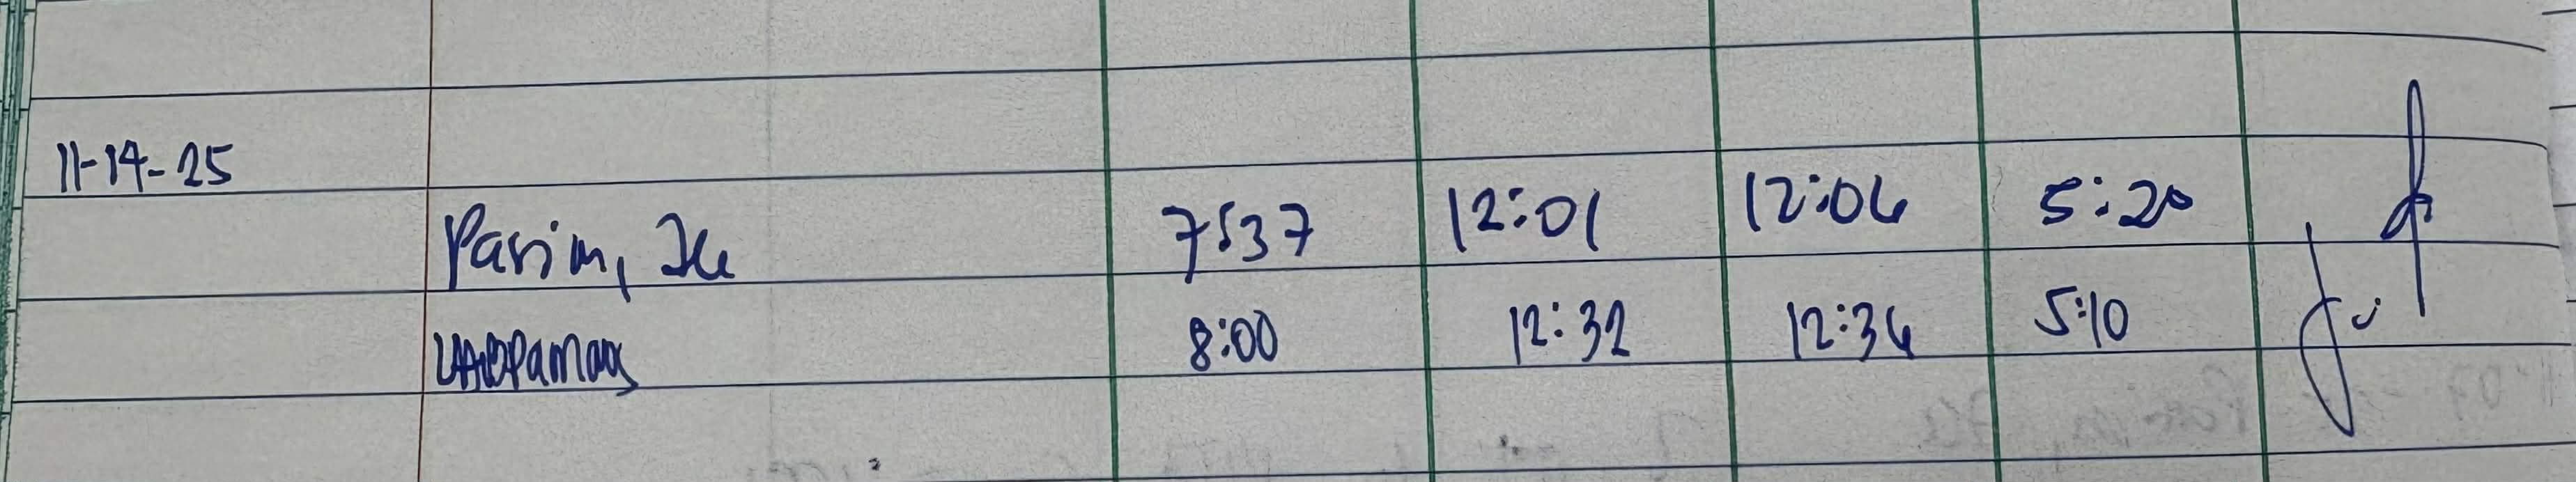 11-14-25
Parim, 7:37 12:01 12:06 5:20
8:00 12:32 12:36 5:10